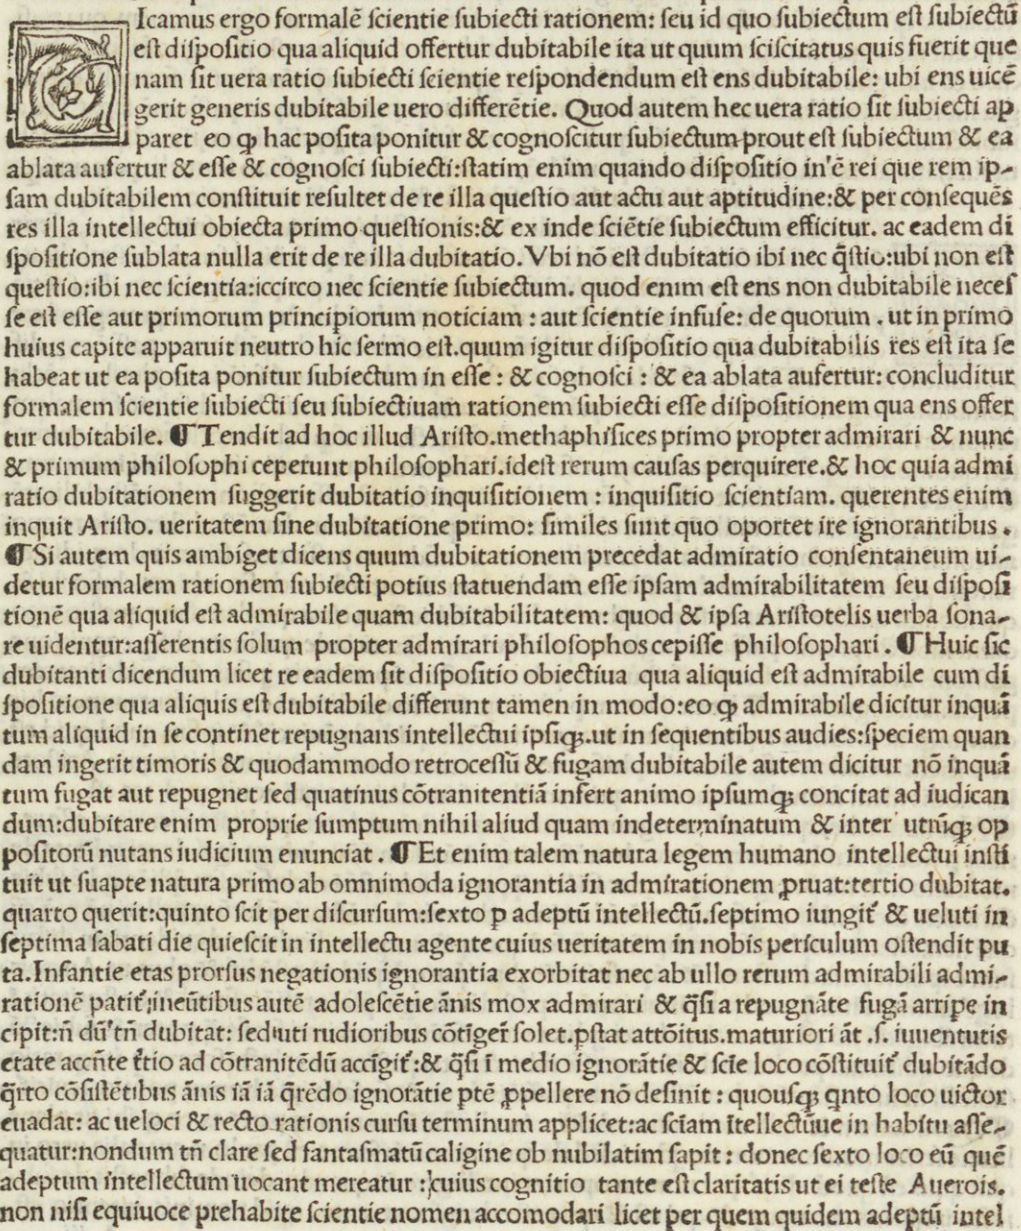 DIcamus ergo formalē scientie subiecti rationem: seu id quo subiectum est subiectū
est dispositio qua aliquid offertur dubitabile ita ut quum sciscitatus quis fuerit que
nam sit uera ratio subiecti scientie respondendum est ens dubitabile: ubi ens uicē
gerit generis dubitabile uero differētie. Quod autem hec uera ratio sit subiecti ap
paret eo ꝙ hac posita ponitur & cognoscitur subiectum prout est subiectum & ea
ablata aufertur & esse & cognosci subiecti:statim enim quando dispositio in'ē rei que rem ip-
sam dubitabilem constituit resultet de re illa questio aut actu aut aptitudine:& per consequēs
res illa intellectui obiecta primo questionis:& ex inde sciētie subiectum efficitur. ac eadem di
spositione sublata nulla erit de re illa dubitatio. Vbi nō est dubitatio ibi nec q̄stio:ubi non est
questio:ibi nec scientia:iccirco nec scientie subiectum. quod enim est ens non dubitabile necef
se est esse aut primorum principiorum noticiam : aut scientie infuse: de quorum . ut in primo
huius capite apparuit neutro hic sermo est.quum igitur dispositio qua dubitabilis res est ita se
habeat ut ea posita ponitur subiectum in esse : & cognosci : & ea ablata aufertur: concluditur
formalem scientie subiecti seu subiectiuam rationem subiecti esse dispositionem qua ens offer
tur dubitabile. ¶Tendit ad hoc illud Aristo.methaphisices primo propter admirari & nunc
& primum philosophi ceperunt philosophari.idest rerum causas perquirere.& hoc quia admi
ratio dubitationem suggerit dubitatio inquisitionem : inquisitio scientiam. querentes enim
inquit Aristo. ueritatem sine dubitatione primo: similes sunt quo oportet ire ignorantibus .
¶Si autem quis ambiget dicens quum dubitationem precedat admiratio consentaneum ui-
detur formalem rationem subiecti potius statuendam esse ipsam admirabilitatem seu disposi
tionē qua aliquid est admirabile quam dubitabilitatem: quod & ipsa Aristotelis uerba sona-
re uidentur:asserentis solum propter admirari philosophos cepisse philosophari . ¶Huic sic
dubitanti dicendum licet re eadem sit dispositio obiectiua qua aliquid est admirabile cum di
spositione qua aliquis est dubitabile differunt tamen in modo:eo ꝙ admirabile dicitur inquā
tum aliquid in se continet repugnans intellectui ipsiqꝫ.ut in sequentibus audies:speciem quan
dam ingerit timoris & quodammodo retrocessū & fugam dubitabile autem dicitur nō inquā
tum fugat aut repugnet sed quatinus cōtranitentiā infert animo ipsumqꝫ concitat ad iudican
dum:dubitare enim proprie sumptum nihil aliud quam indeterminatum & inter utrūqꝫ op
positorū nutans iudicium enunciat . ¶Et enim talem natura legem humano intellectui insti
tuit ut suapte natura primo ab omnimoda ignorantia in admirationem ꝓruat:tertio dubitat.
quarto querit:quinto scit per discursum:sexto p adeptū intellectū.septimo iungit᷑ & ueluti in
septima sabati die quiescit in intellectu agente cuius ueritatem in nobis periculum ostendit pu
ta.Infantie etas prorsus negationis ignorantia exorbitat nec ab ullo rerum admirabili admi-
rationē patit᷑;ineūtibus autē adolescētie ānis mox admirari & q̄si a repugnāte fugā arripe in
cipit:n̄ dū tn̄ dubitat: sed uti rudioribus cōtiger᷑ solet.pstat attōitus.maturiori āt .s. iuuentutis
etate accn̄te t̄tio ad cōtranitēdū accīgit᷑:& q̄si ī medio ignorātie & scīe loco cōstituit᷑ dubitādo
q̄rto cōsistētibus ānis iā iā q̄rēdo ignorātie ptē ꝓpellere nō desinit : quousqꝫ qnto loco uictor
euadat: ac ueloci & recto rationis cursu terminum applicet:ac sciam ītellectūue in habitu asse-
quatur:nondum tn̄ clare sed fantasmatū caligine ob nubilatim sapit : donec sexto loco eū quē
adeptum intellectum uocant mereatur : cuius cognitio tante est claritatis ut ei teste Auerois.
non nisi equiuoce prehabite scientie nomen accomodari licet per quem quidem adeptū intel